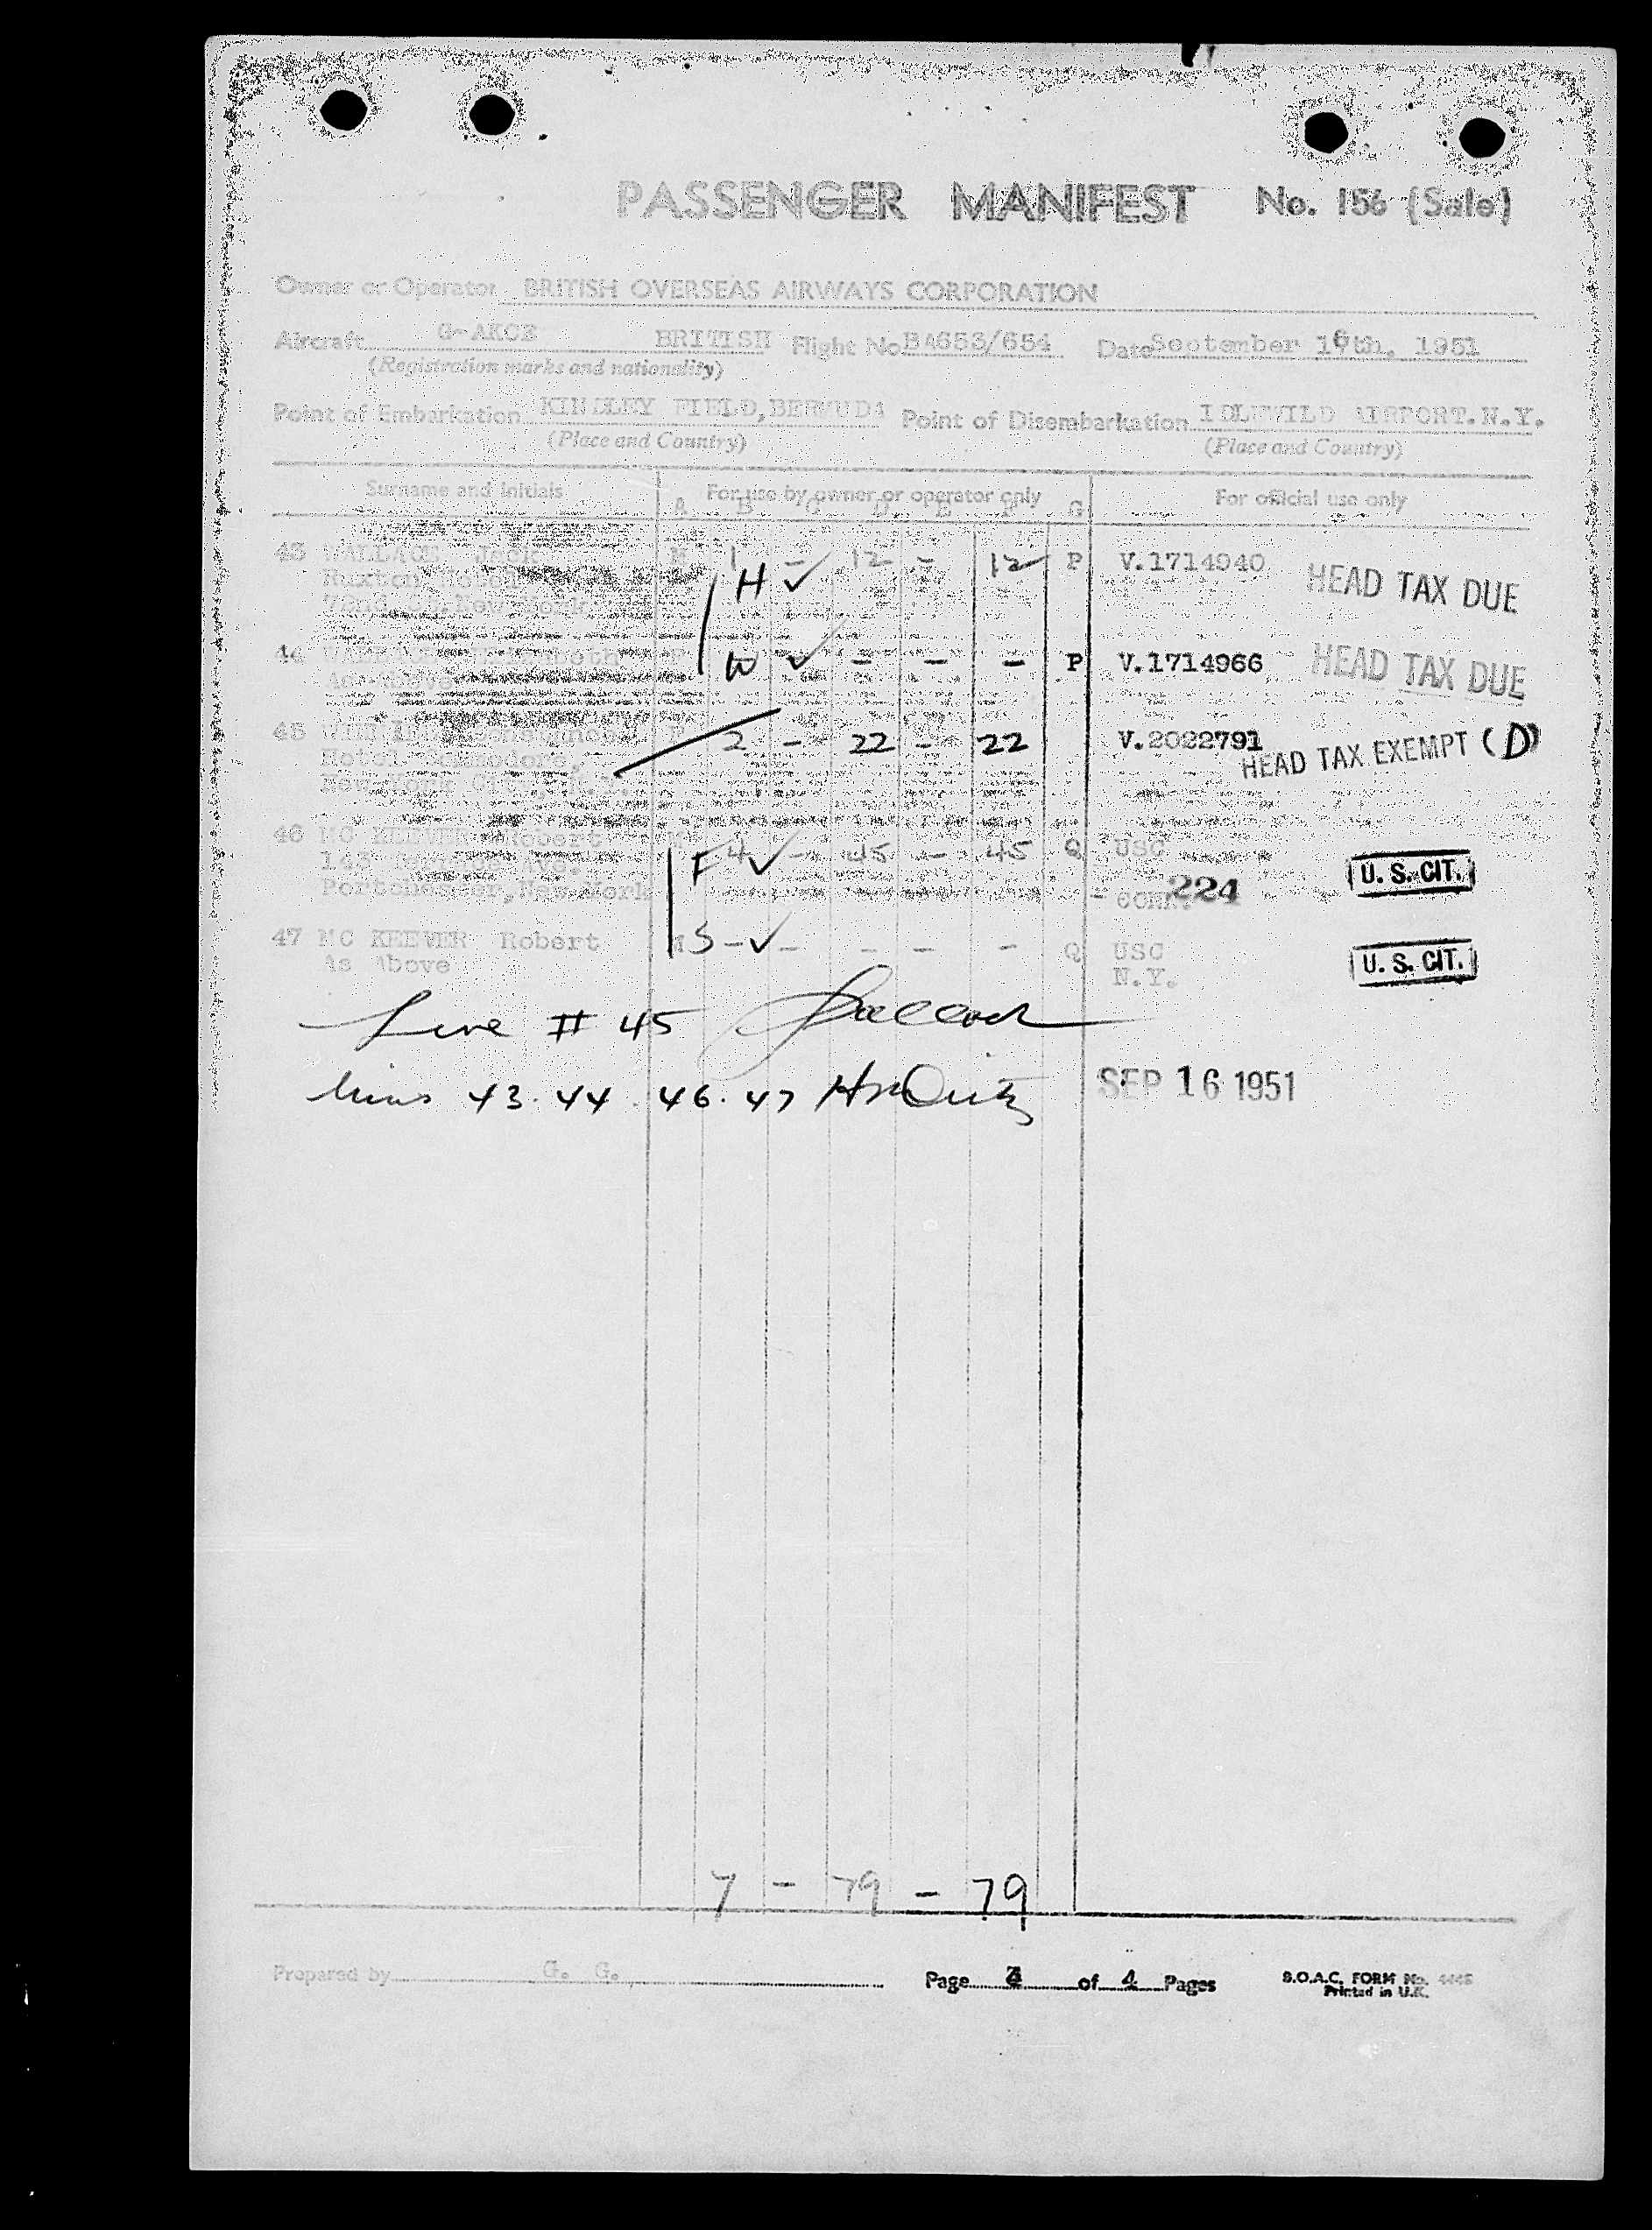 PASSENGER MANIFEST No. 156 (Sale)
Owner or Operator BRITISH OVERSEAS AIRWAYS CORPORATION
Aircraft G-AKCE BRITISH Flight No. BA653/654 Date September 16th, 1951
(Registration marks and nationality)
Point of Embarkation KINDLEY FIELD, BERMUDA Point of Disembarkation IDLEWILD AIRPORT. N.Y.
(Place and Country) (Place and Country)
Surname and Initials For use by owner or operator only For official use only
A B C D E F G
43 WALLACE Jack M 1 - 12 - 12 P V.1714940 HEAD TAX DUE
H ✓
44 W ✓ - - - P V.1714966 HEAD TAX DUE
45 2 - 22 - 22 V.2022791
Hotel Commodore, HEAD TAX EXEMPT (D)
46 MC KEEVER Robert F 4 ✓ - 45 - 45 Q USC
143 U. S. CIT.
Portchester, New York 224
47 MC KEEVER Robert M S - ✓ - - - - Q USC
As Above N.Y. U. S. CIT.
Line # 45
Lines 43. 44. 46. 47 SEP 16 1951
7 - 79 - 79
Prepared by G. G. Page of 4 Pages B.O.A.C. FORM No. 4445
Printed in U.K.